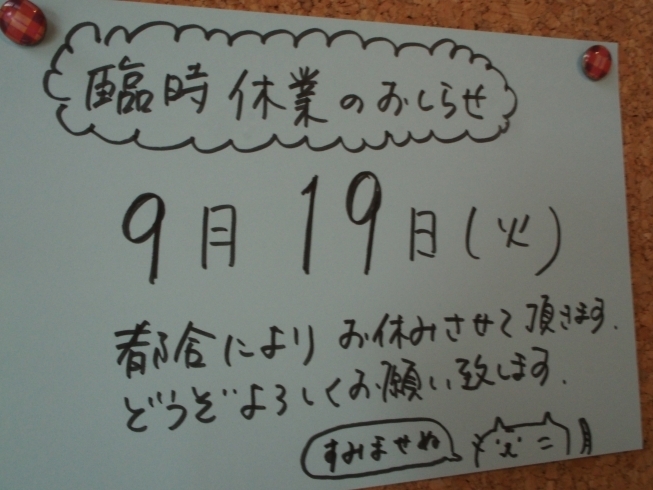 臨時休業のおしらせ
9月19日(火)
都合によりお休みさせて頂きます.
どうぞよろしくお願い致します.
すみませぬ